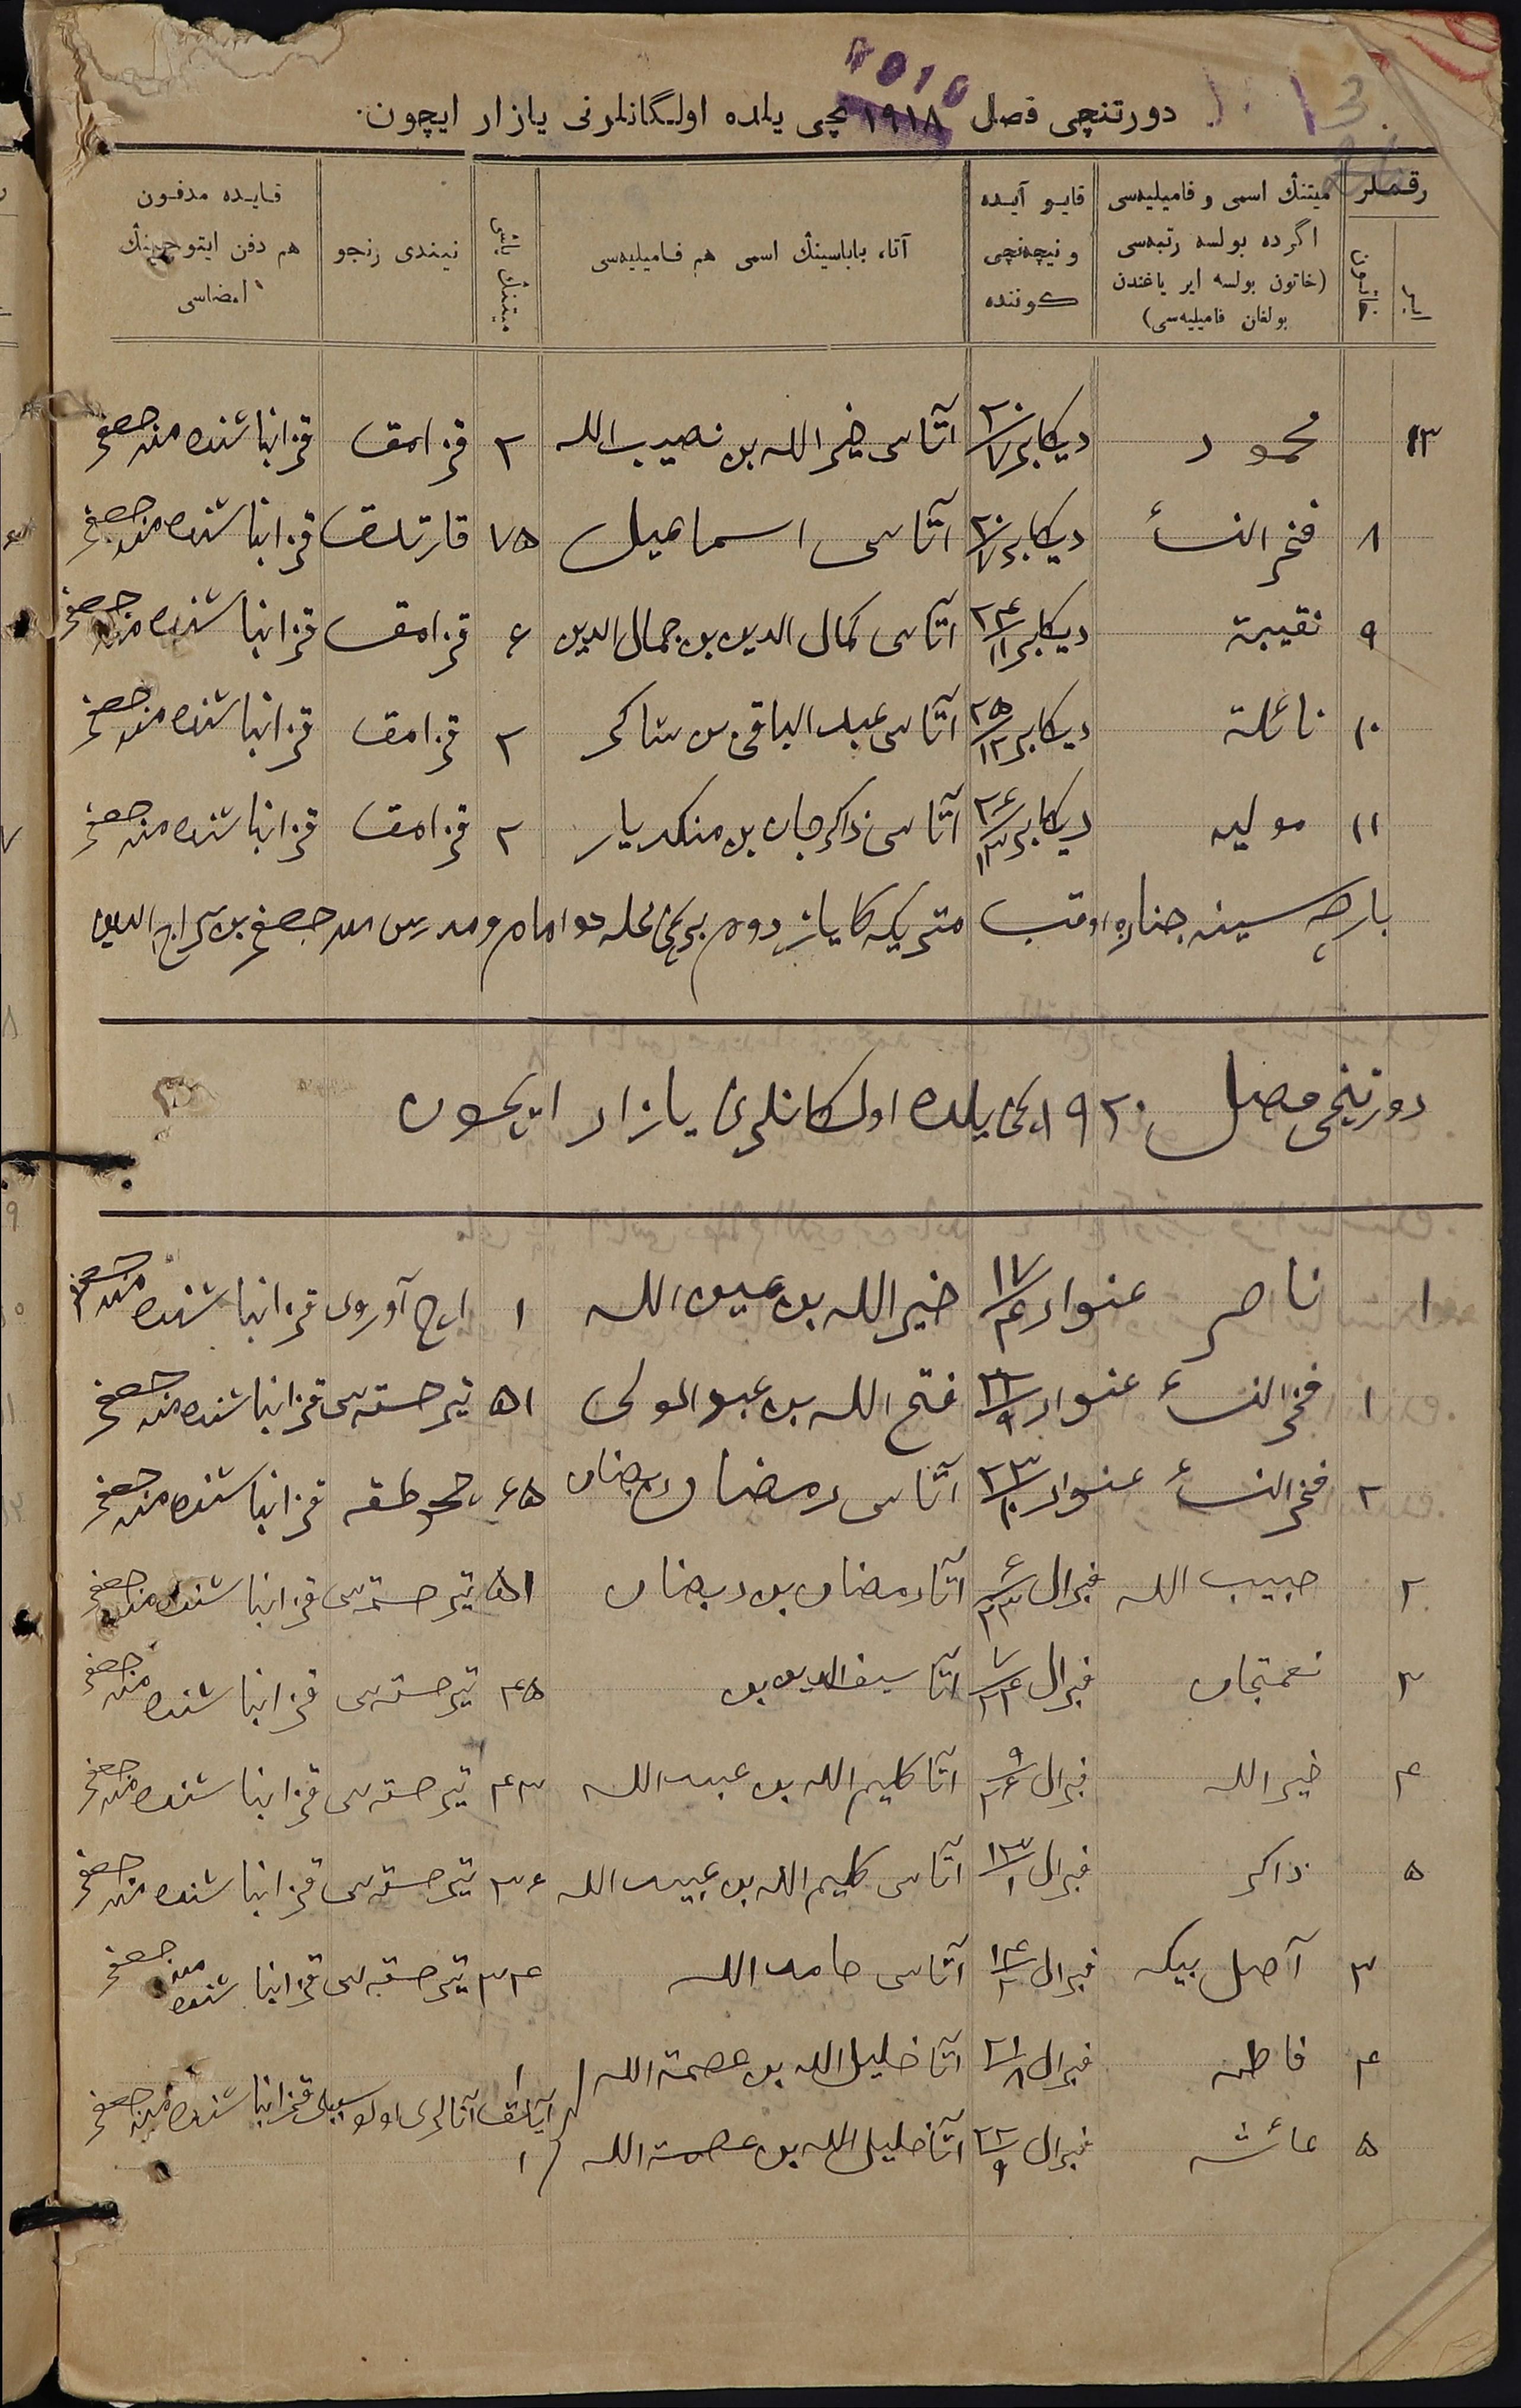 دورتنچی فصل ١٩١٨ نچی یلده اولـگانلرنی یازار ایچون.
رقـملر
ایر
خاتون
میتنڭ اسمی و فامیلیەسی
اگرده بولسه رتبەسی
(خاتون بولسه ایر یاغندن
بولغان فامیلیەسی)
قایو آیده
و نیچەنچی
کوننده
آتا، باباسینڭ اسمی هم فـامیلیەسی
میتنڭ یاشی
نیندی رنجو
قـایـده مدفـون
هم دفن ایتوچینڭ
امضاسی
١٣ محمود دیکابر ٢٠/٧ آتاسی خیرالله بن نصیب الله ٢ قزامق قزانبا شنده منه جعفر
٨ فخر النسأ دیکابر ٢٠/٧ آتاسی اسماعیل ٧٥ قارتلق قزانبا شنده منه جعفر
٩ نقیبة دیکابر ٢٤/١١ آتاسی کمال الدین بن جمال الدین ٤ قزامق قزانبا شنده منه جعفر
١٠ نائلة دیکابر ٢٥/١٢ آتاسی عبد الباقی بن شاکر ٢ قزامق قزانبا شنده منه جعفر
١١ مولیه دیکابر ٢٦/١٣ آتاسی ذاکرجان بن منکدیار ٢ قزامق قزانبا شنده منه جعفر
بارچه سینه جنازه اوقب متریکه کا یازدوم برنچی محله ده امام و مدرس جعفر بن سراج الدین
دورتنچی فصل ١٩٢٠ نچی یلده اولکانلرنی یازار ایچون
١ ناصر عنوار ١٧/٤ خیرالله بن عین الله ١ اچ آوروی قزانبا شنده منه جعفر
١ فخر النسأ عنوار ٢٢/٩ فتح الله بن عبد المولی ٥١ تیر حسته سی قزانبا شنده منه جعفر
٢ فخر النسأ عنوار ٢٣/١٠ آتاسی رمضان بن رمضان ٦٥ قزانبا شنده منه جعفر
٢ حبیب الله فبرال ٦/٢٤ آتا رمضان بن رمضان ٥١ تیر حسته سی قزانبا شنده منه جعفر
٣ نعمتجان فبرال ٧/٢٤ آتا سیف الدین بن ٤٥ تیر حسته سی قزانبا شنده منه جعفر
٤ خیر الله فبرال ٩/٢٦ آتا کلیم الله بن عبید الله ٤٣ تیر حسته سی قزانبا شنده منه جعفر
٥ ذاکر فبرال ١٣/١ آتاسی کلیم الله بن عبید الله ٣٦ تیر حسته سی قزانبا شنده منه جعفر
٣ آصل بیکه فبرال ١٤/٢ آتاسی حامد الله ٣٤ تیر حسته سی قزانبا شنده منه جعفر
٤ فاطمه فبرال ٢١/٨ آتا خلیل الله بن عصمة الله ١
آیلق آنالری اولو سببلی قزانبا شنده منه جعفر
٥ عائشه فبرال ٢٢/٩ آتا خلیل الله بن عصمة الله ١